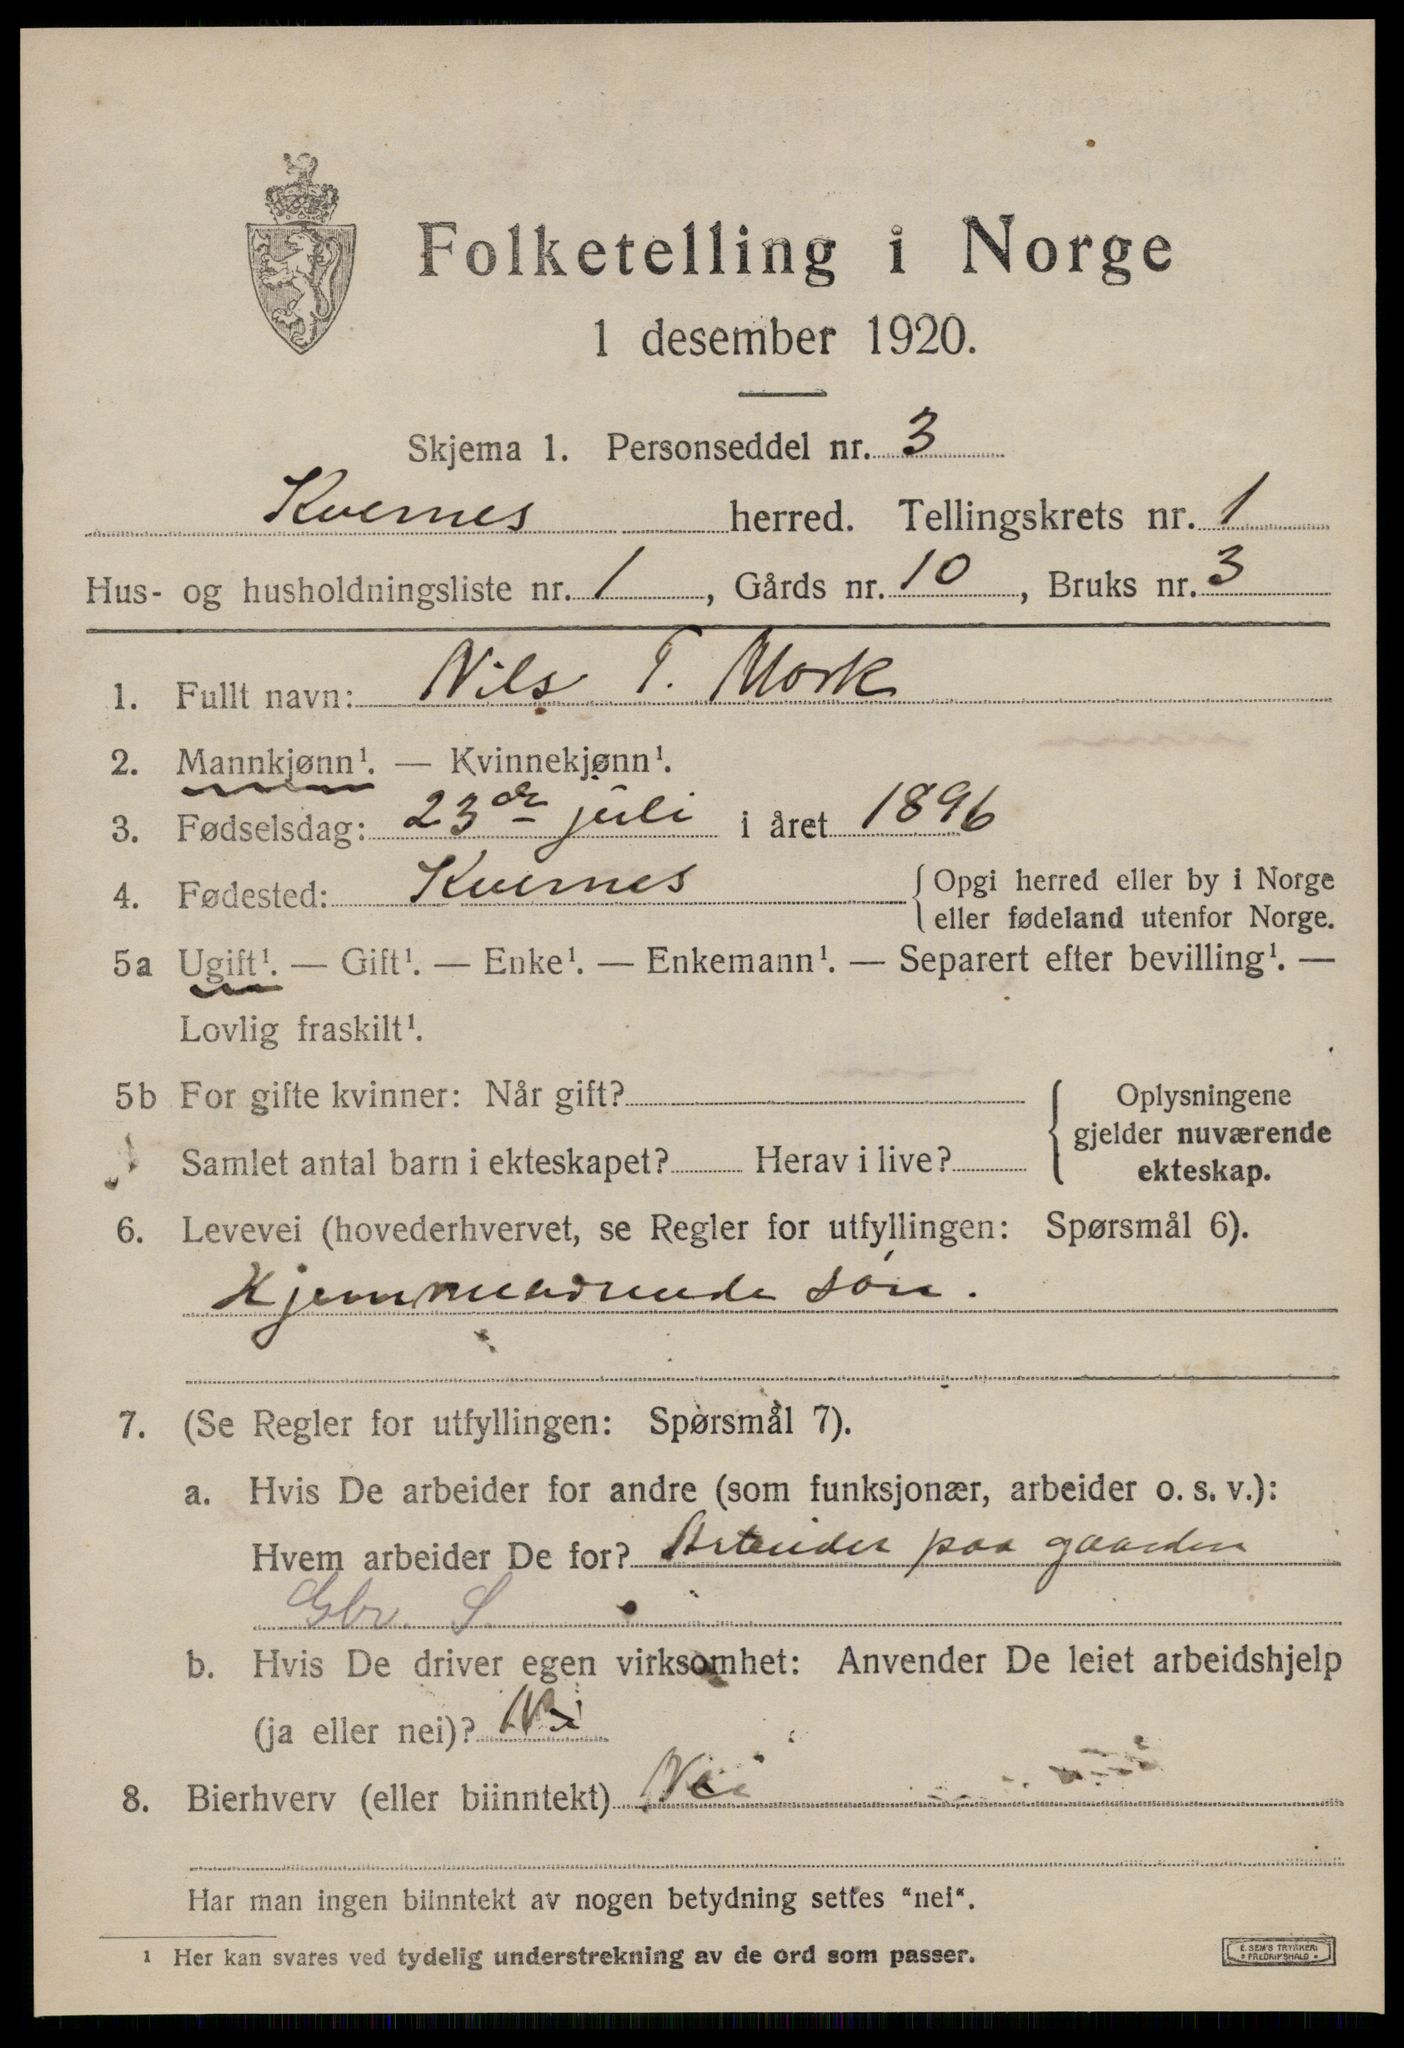 Folketelling i Norge
1 desember 1920.
Skjema 1. Personseddel nr. 3
Kvernes herred. Tellingskrets nr. 1
Hus- og husholdningsliste nr. 1, Gårds nr. 10, Bruks nr. 3
1. Fullt navn: Nils T. Mork
2. Mannkjønn¹. — Kvinnekjønn¹.
3. Fødselsdag: 23de juli i året 1896
4. Fødested: Kvernes {Opgi herred eller by i Norge
eller fødeland utenfor Norge.
5a Ugift¹. — Gift¹. — Enke¹. — Enkemann¹. — Separert efter bevilling¹. —
Lovlig fraskilt¹.
5b For gifte kvinner: Når gift?
Samlet antal barn i ekteskapet? Herav i live?
{Oplysningene
gjelder nuværende
ekteskap.
6. Levevei (hovederhvervet, se Regler for utfyllingen: Spørsmål 6).
Hjemmeværende søn.
7. (Se Regler for utfyllingen: Spørsmål 7).
a. Hvis De arbeider for andre (som funksjonær, arbeider o. s. v.):
Hvem arbeider De for? Arbeider paa gaarden
Gbr. S
b. Hvis De driver egen virksomhet: Anvender De leiet arbeidshjelp
(ja eller nei)? Nei
8. Bierhverv (eller biinntekt) Nei
Har man ingen biinntekt av nogen betydning settes “nei“.
¹ Her kan svares ved tydelig understrekning av de ord som passer.
E. SEM'S TRYKKERI
• FREDRIKSHALD •